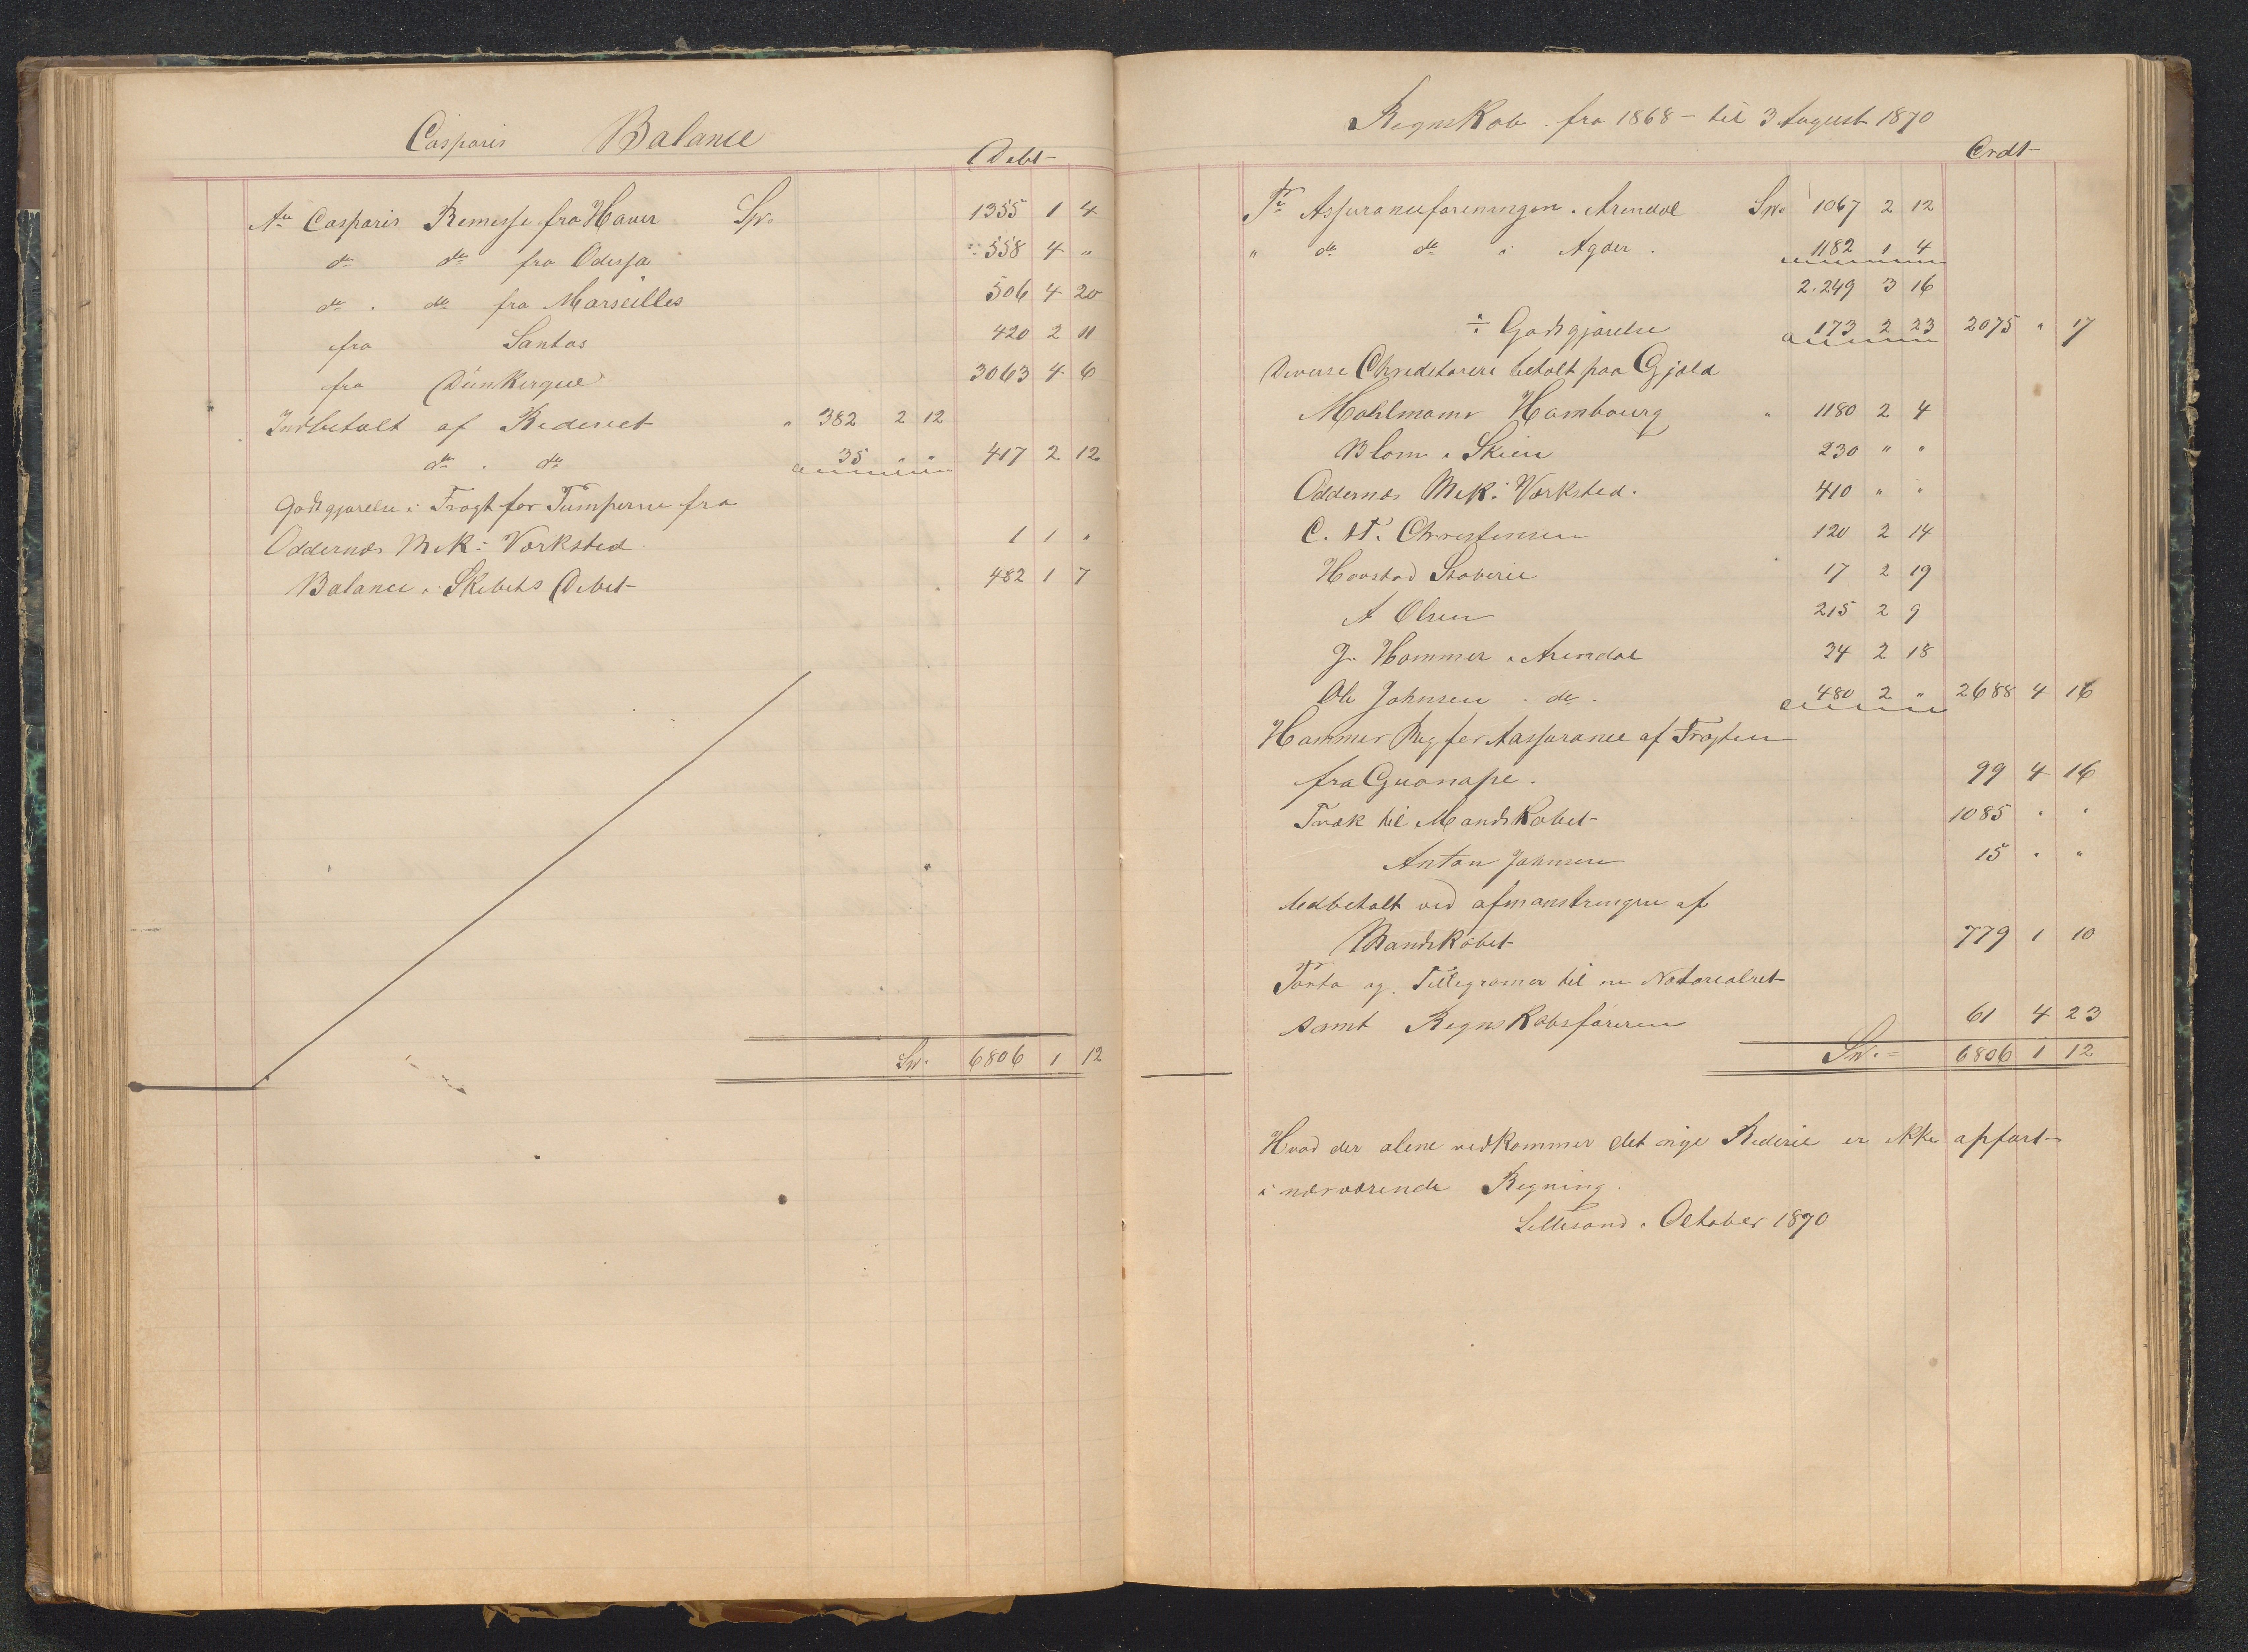 Casparis Balance
Debt
An Casparis Remesse fra Haver Sp. 1355 1 4
do do fra Odessa " 558 4 "
do . do fra Marseilles 506 4 20
fra Santos 420 2 11
fra Dünkerque 3063 4 6
Indbetalt af Rederiet " 382 2 12
do . do 35 " " 417 2 12
Godtgjørelse i Fragt for Pumperne fra
Oddernæs Mek: Værksted 1 1 "
Balance i Skibets Debet 482 1 7
Sp. 6806 1 12
Regnskab fra 1868 - til 3 August 1870
Crdt
Pr Assuranceforeningen i Arendal Sp. 1067 2 12
" do do i Agder . 1182 1 4
2.249 3 16
÷ Godtgjørelse 173 2 23 2075 " 17
Diverse Chreditorere betalt paa Gjæld
Mahlmann Hambourg " 1180 2 4
Blom i Skien 230 " "
Oddernæs Mek: Værksted. 410 " "
C. H. Christensen 120 2 14
Hovstad Støberie 17 2 19
A Olsen 215 2 9
J. Hammer i Arendal 34 2 18
Ole Johnsen . do . 480 2 " 2688 4 16
Hammer Reg for Aassurance af Fragten
fra Guanape. 99 4 16
Træk til Mandskabet 1085 " "
Anton Johnsen 15 " "
Udbetalt ved afmønstringen af
Mandskabet 779 1 10
Porto og Tellegramer til en Notarealret
samt Regnskabsføreren 61 4 23
Sp. 6806 1 12
Hvad der alene vedkommer det nye Rederie er ikke opført
i nærværende Regning.
Lillesand i October 1870